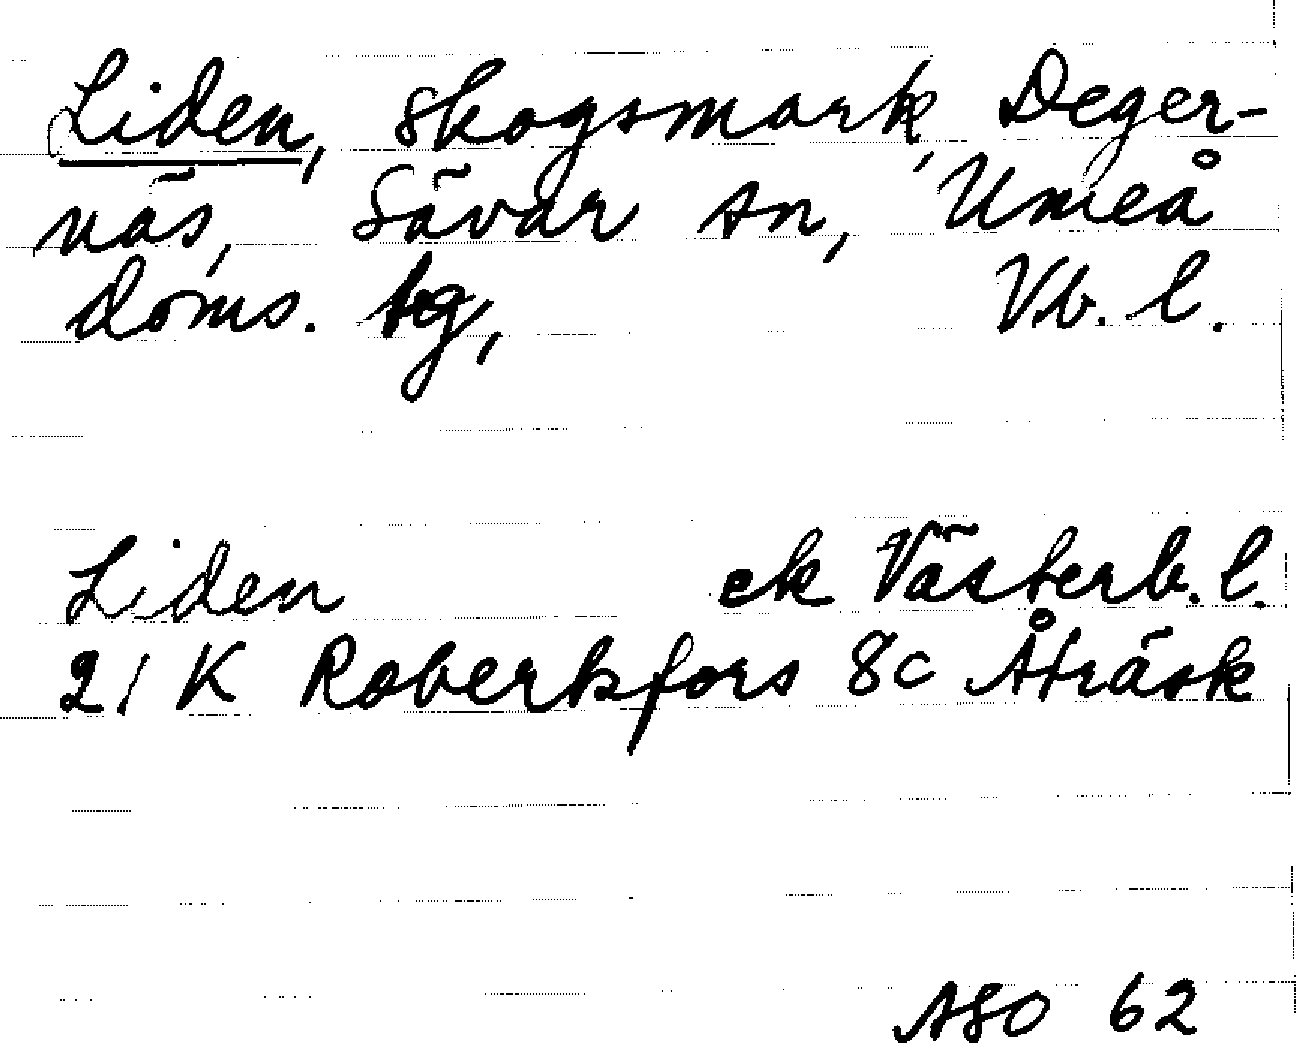 Liden, skogsmark, Deger-
näs, Sävar sn, Umeå
doms. tg, Vb. l.
Liden ek Västerb. l.
21 K Robertsfors 8c Åträsk
ASO 62